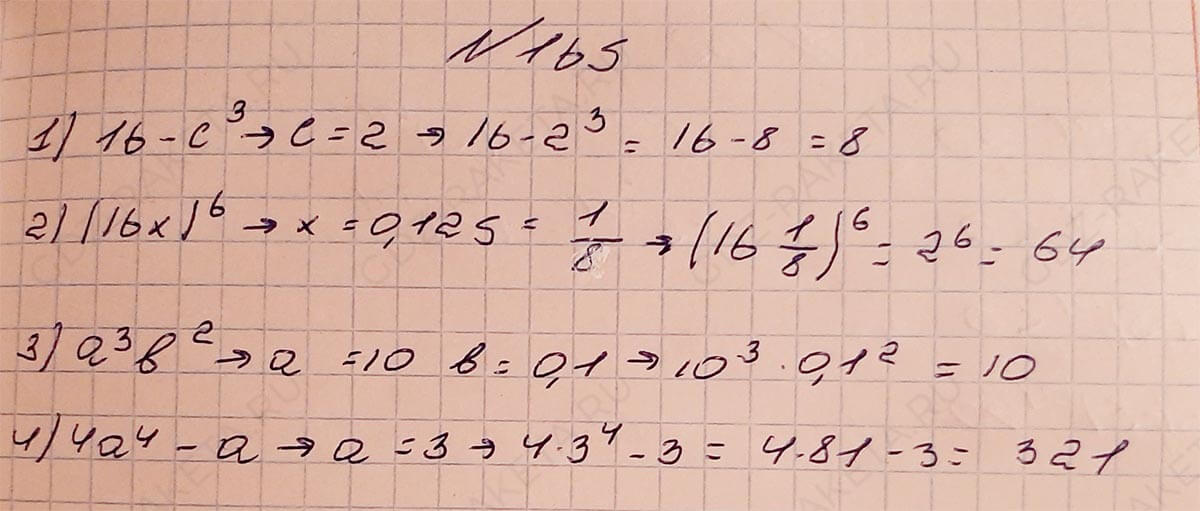 №165
1) 16 - c³ → c = 2 → 16 - 2³ = 16 - 8 = 8
2) (16x)⁶ → x = 0,125 = 1/8 → (16 1/8)⁶ = 2⁶ = 64
3) a³b² → a = 10 b = 0,1 → 10³ · 0,1² = 10
4) 4a⁴ - a → a = 3 → 4·3⁴ - 3 = 4·81 - 3 = 321